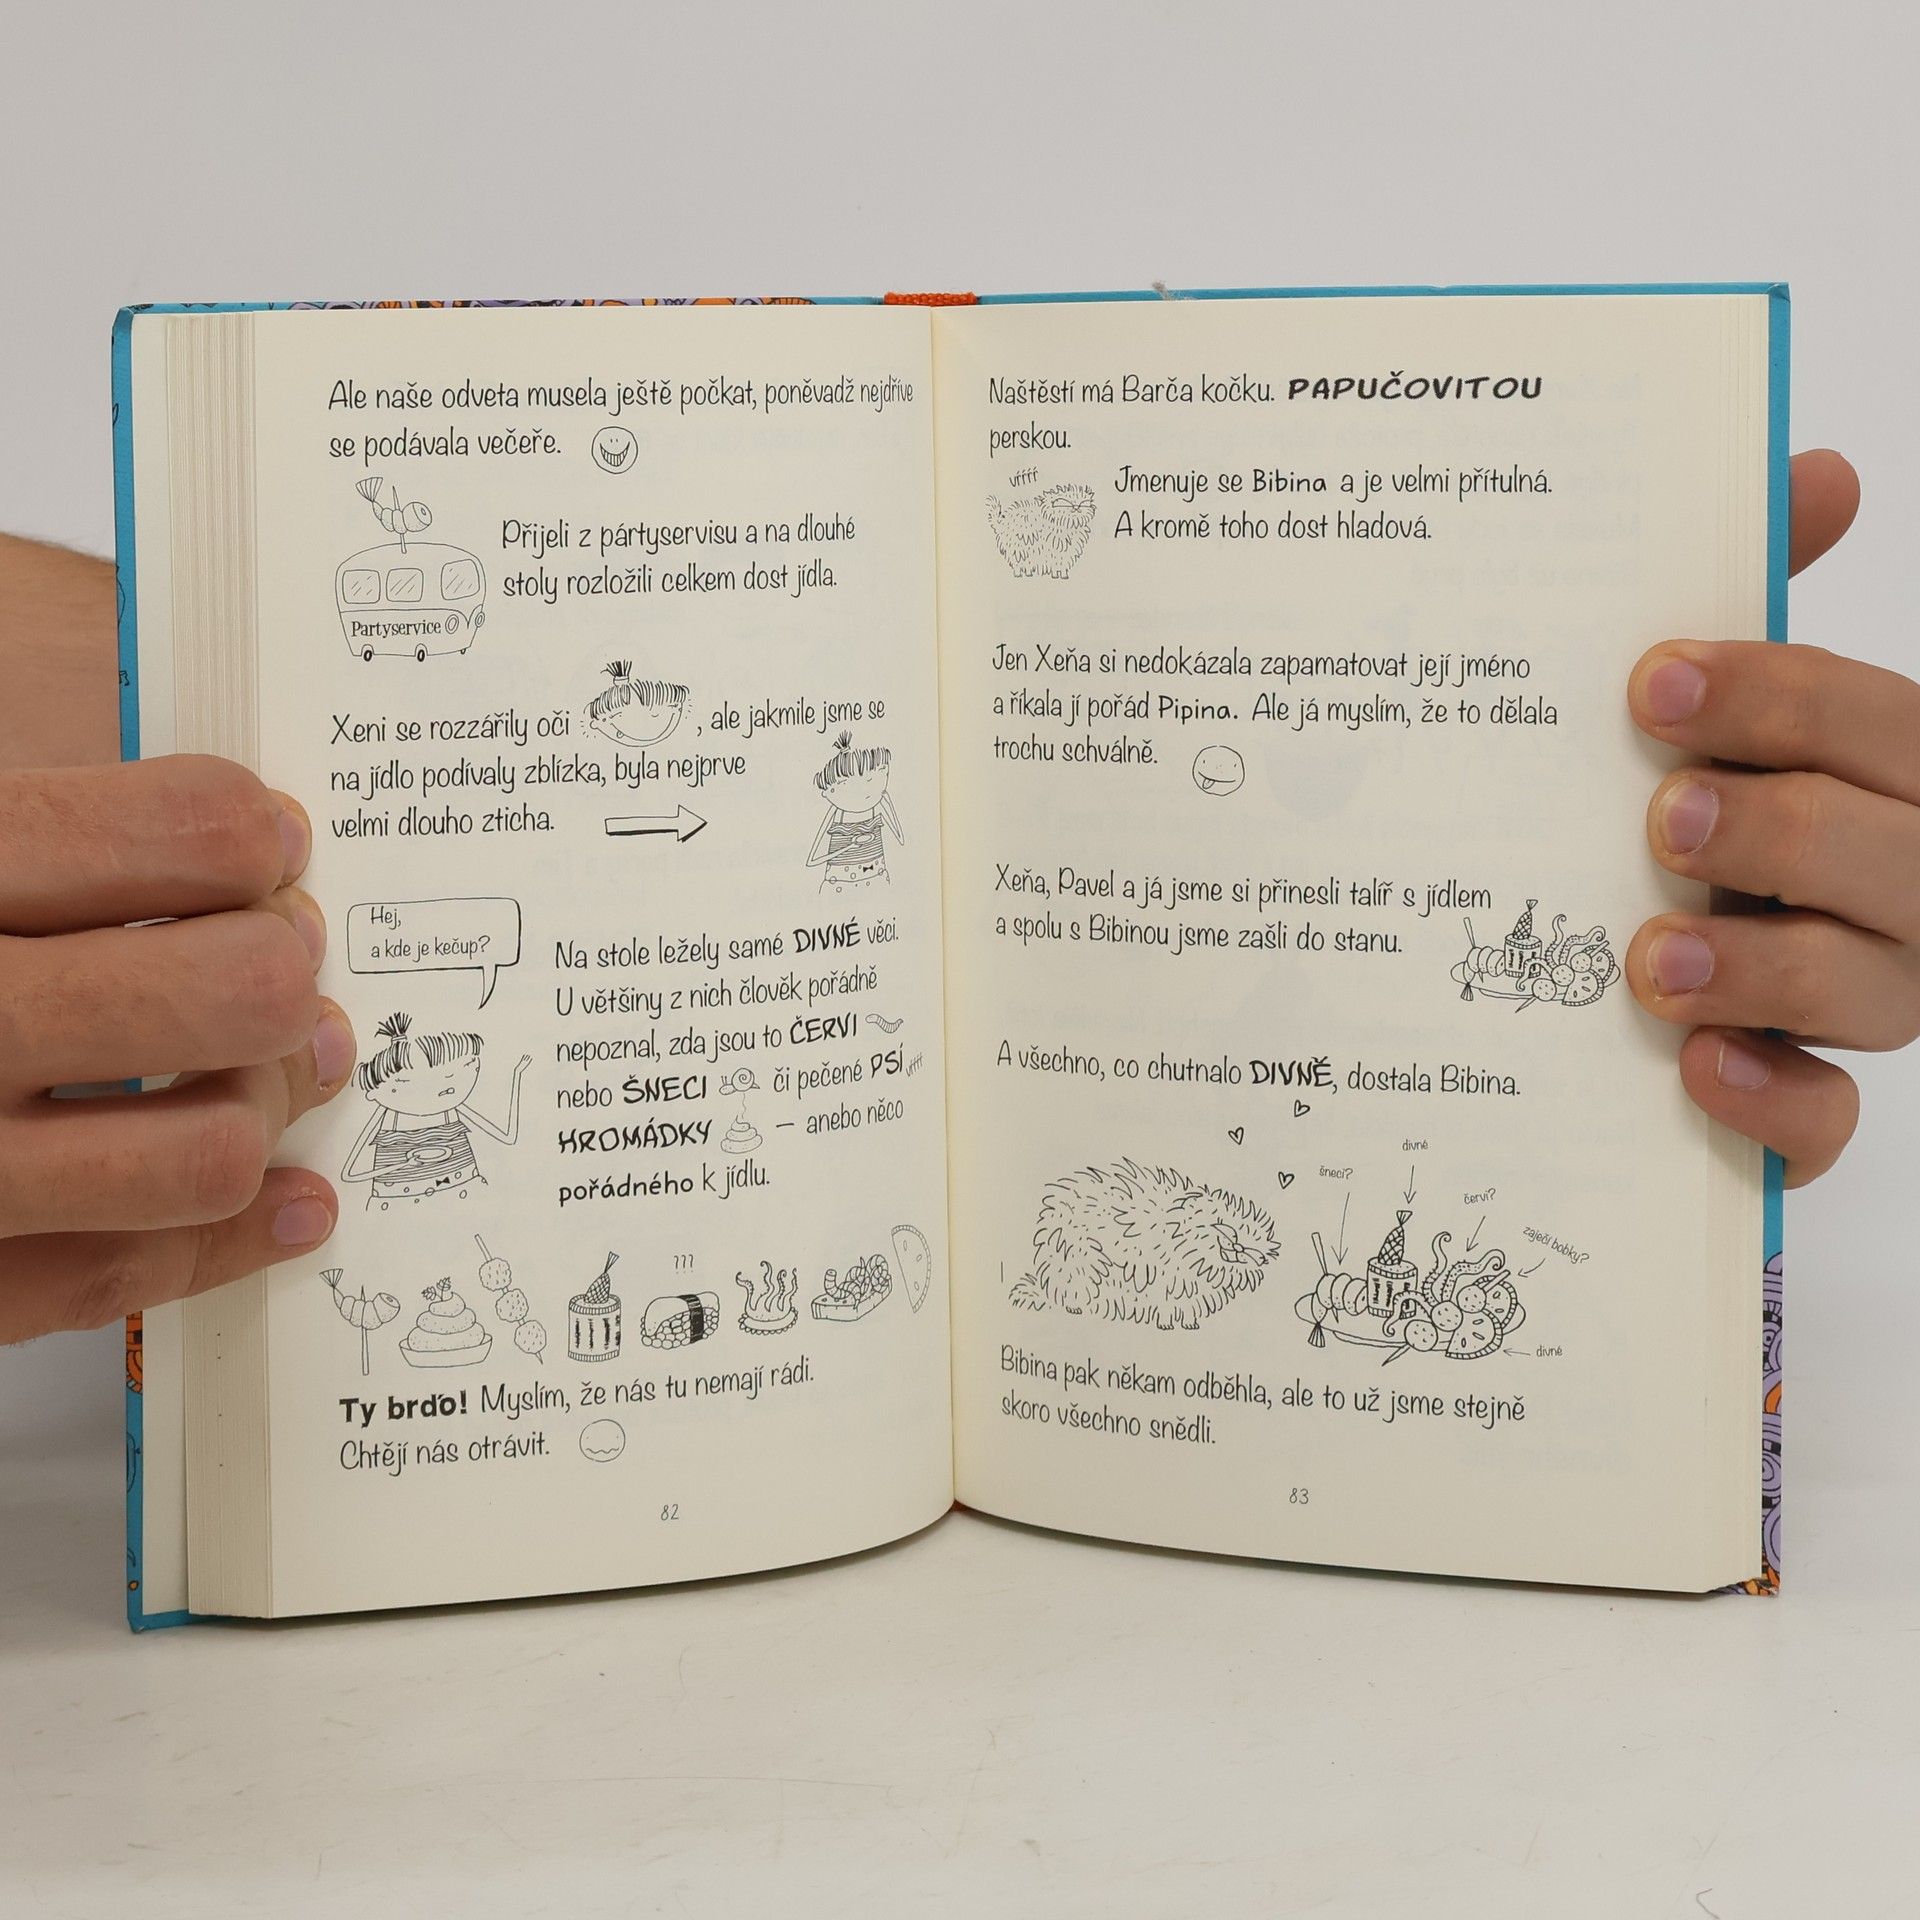 Ale naše odveta musela ještě počkat, poněvadž nejdříve
se podávala večeře.
Přijeli z pártyservisu a na dlouhé
stoly rozložili celkem dost jídla.
Partyservice
Xeni se rozzářily oči , ale jakmile jsme se
na jídlo podívaly zblízka, byla nejprve
velmi dlouho zticha.
Hej,
a kde je kečup?
Na stole ležely samé DIVNÉ věci.
U většiny z nich člověk pořádně
nepoznal, zda jsou to ČERVI
nebo ŠNECI či pečené PSÍ
HROMÁDKY – anebo něco
pořádného k jídlu.
???
Ty brďo! Myslím, že nás tu nemají rádi.
Chtějí nás otrávit.
82
Naštěstí má Barča kočku. PAPUČOVITOU
perskou.
vrrrr
Jmenuje se Bibina a je velmi přítulná.
A kromě toho dost hladová.
Jen Xeňa si nedokázala zapamatovat její jméno
a říkala jí pořád Pipina. Ale já myslím, že to dělala
trochu schválně.
Xeňa, Pavel a já jsme si přinesli talíř s jídlem
a spolu s Bibinou jsme zašli do stanu.
A všechno, co chutnalo DIVNĚ, dostala Bibina.
divné
šneci?
červi?
zaječí bobky?
divné
Bibina pak někam odběhla, ale to už jsme stejně
skoro všechno snědli.
83